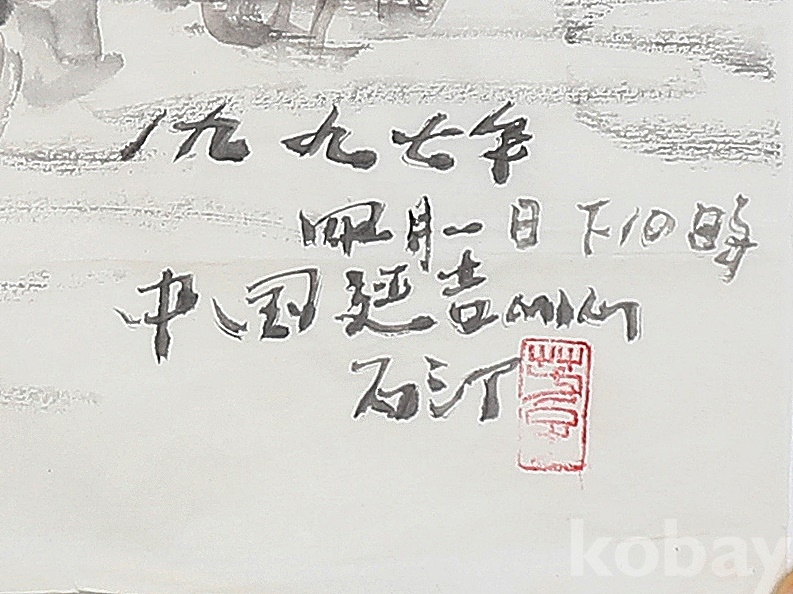 一九九七年
四月一日下10時
中国延吉
石汀
kobay